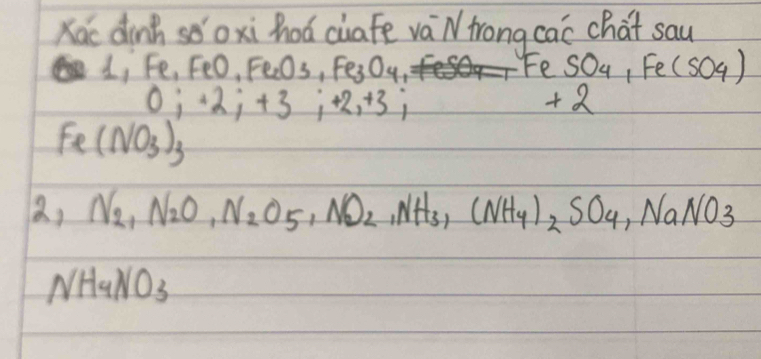 Xác định số oxi hoá của Fe và N trong các chất sau
1, Fe, FeO, Fe2O3, Fe3O4, FeSO4, FeSO4, Fe(SO4)
0; +2; +3; +2,+3; +2
Fe(NO3)3
2, N2, N2O, N2O5, NO2, NH3, (NH4)2SO4, NaNO3
NH4NO3